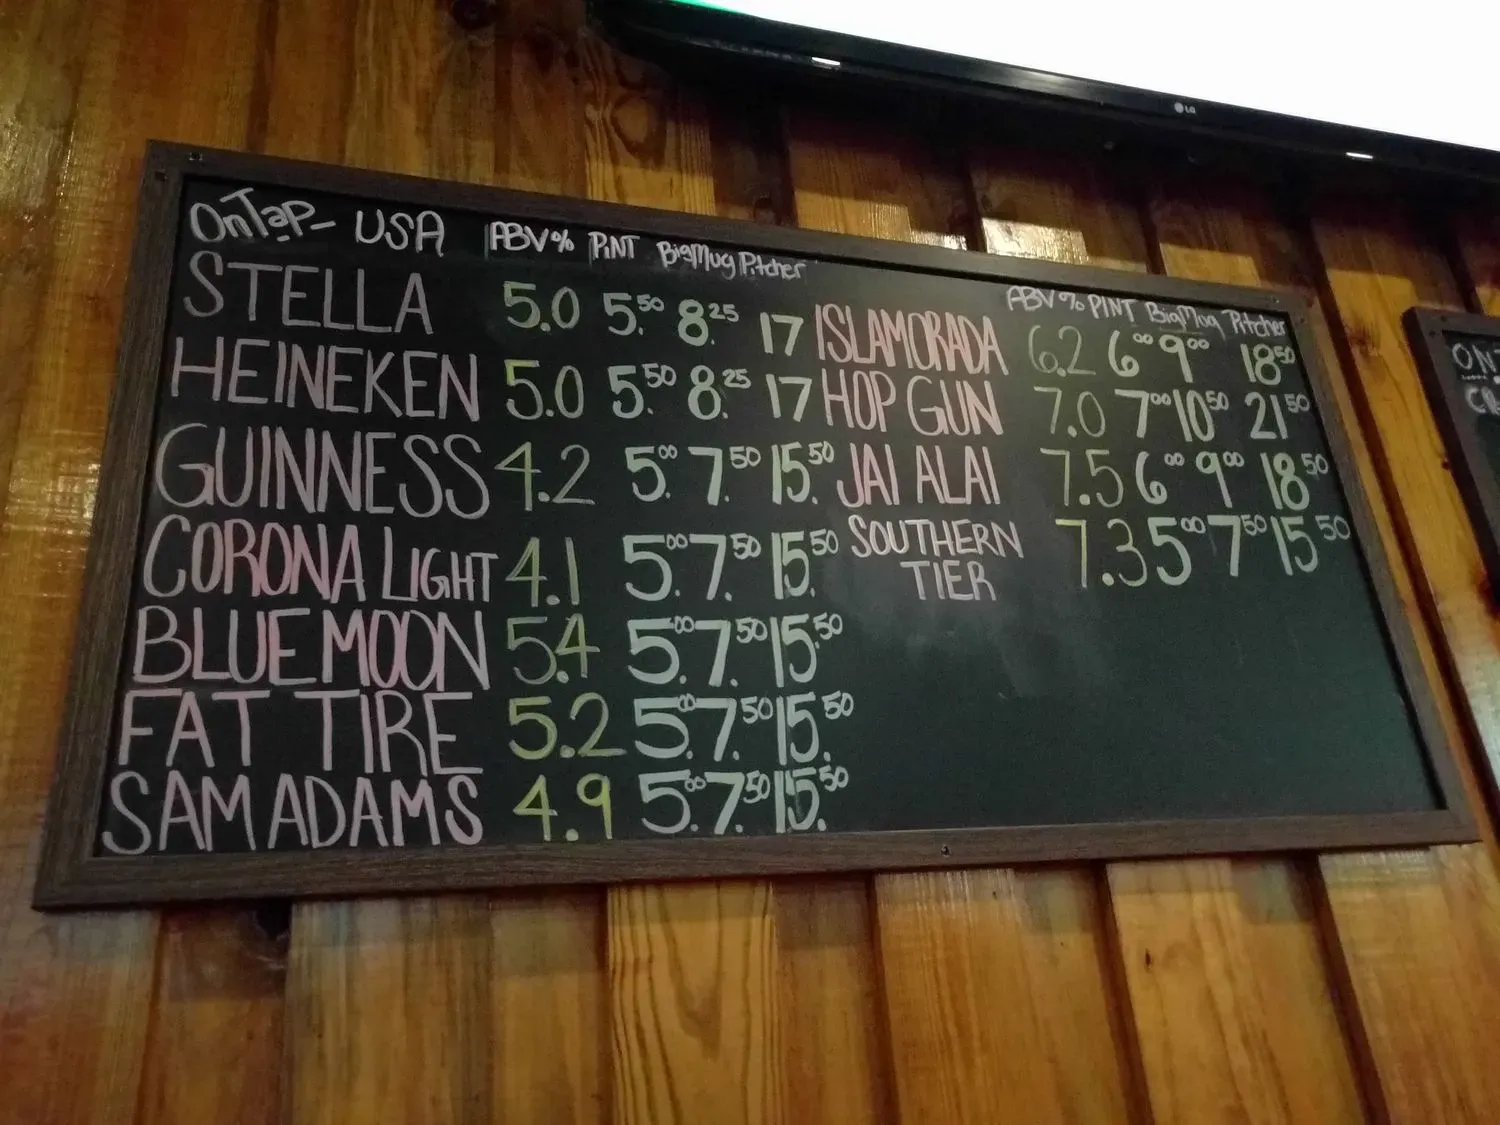 LG
OnTap- USA ABV% PINT BigMug Pitcher
STELLA 5.0 5.50 8.25 17
HEINEKEN 5.0 5.50 8.25 17
GUINNESS 4.2 5.00 7.50 15.50
CORONA LIGHT 4.1 5.00 7.50 15.50
BLUE MOON 5.4 5.00 7.50 15.50
FAT TIRE 5.2 5.00 7.50 15.50
SAM ADAMS 4.9 5.00 7.50 15.50
ABV % PINT BigMug Pitcher
ISLAMORADA 6.2 6.00 9.00 18.50
HOP GUN 7.0 7.00 10.50 21.50
JAI ALAI 7.5 6.00 9.00 18.50
SOUTHERN 7.3 5.00 7.50 15.50
TIER